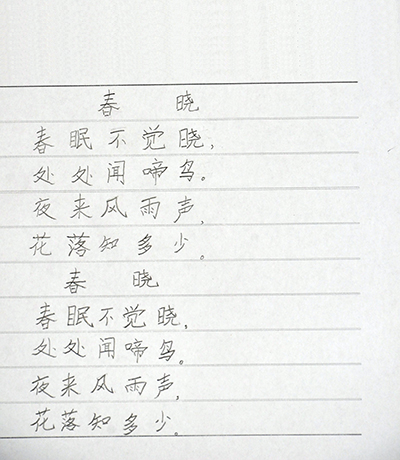 春 晓
春眠不觉晓,
处处闻啼鸟。
夜来风雨声,
花落知多少。
春 晓
春眠不觉晓,
处处闻啼鸟。
夜来风雨声,
花落知多少。